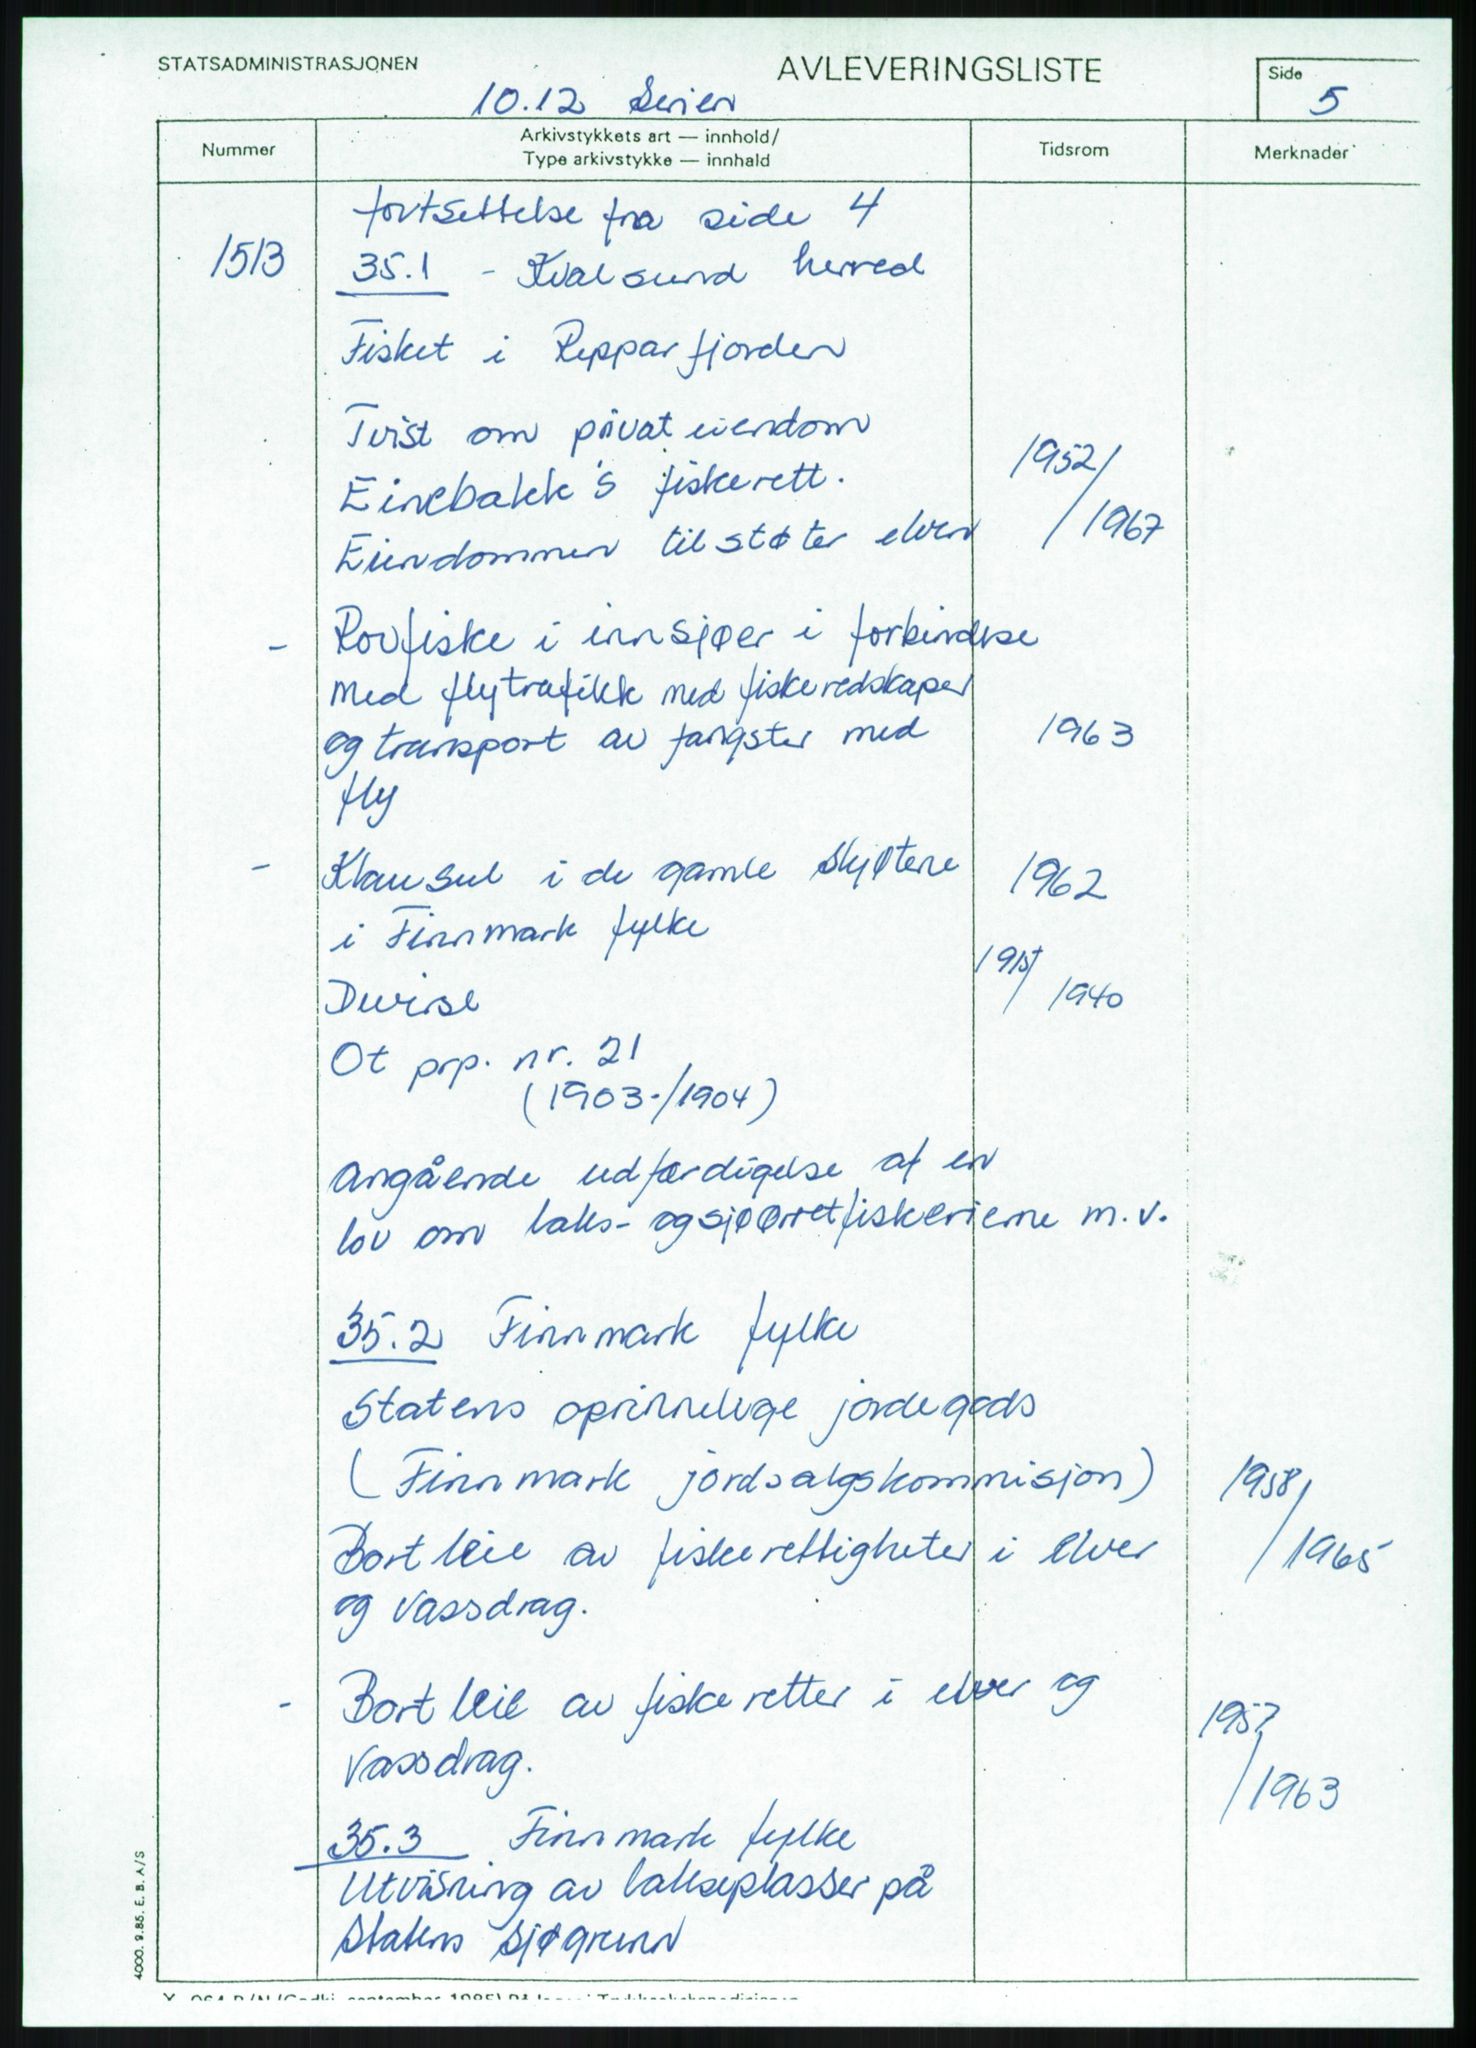 STATSADMINISTRASJONEN
AVLEVERINGSLISTE
Side
5
10.12 Serien
Nummer
Arkivstykkets art — innhold/
Type arkivstykke — innhald
Tidsrom
Merknader
fortsettelse fra side 4
1513 35.1 - Kvalsund herred
Fisket i Repparfjorden
Tvist om privat eiendom
Einebakk's fiskerett.
1952/
Eiendommen tilstøter elven
/1967
- Rovfiske i innsjøer i forbindelse
med flytrafikk med fiskeredskaper
og transport av fangster med 1963
fly
- Klausul i de gamle skjøtene 1962
i Finnmark fylke
Diverse
/1940
Ot prp. nr. 21
(1903-/1904)
Angående udfærdigelse af en
lov om laks- og sjøørretfiskerierne m.v.
35.2 Finnmark fylke
Statens oprinnelige jordegods
(Finnmark jordsalgskommisjon) 1958/
Bortleie av fiskerettigheter i elver /1965
og vassdrag.
- Bortleie av fiskeretter i elver og 1957
vassdrag. /1963
35.3 Finnmark fylke
Utvisning av lakseplasser på
Statens sjøgrunn
4000. 9.85. E. B. A/S